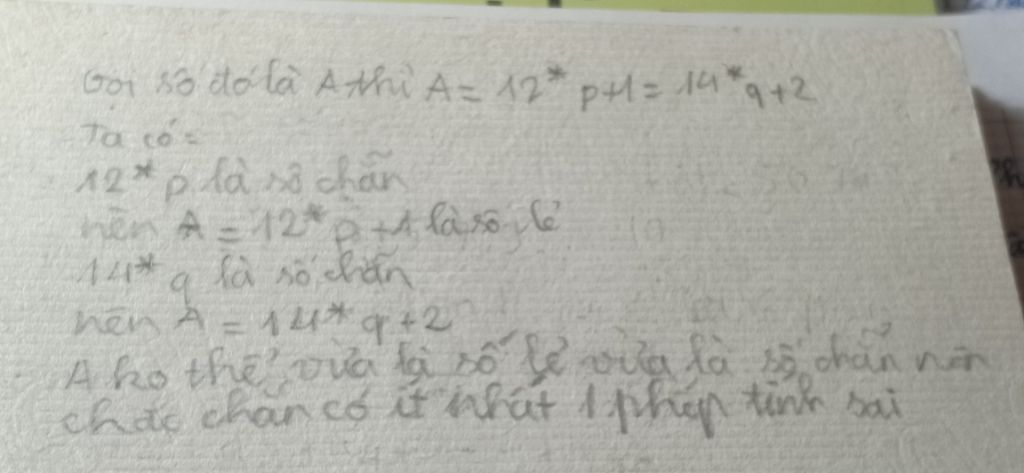 Gọi số đó là A thì A = 12* p+1 = 14* q+2
Ta có =
12* p là số chẵn
nên A = 12* p +1 là số lẻ
14* q là số chẵn
nên A = 14* q+2
A ko thể vừa là số lẻ vừa là số chẵn nên
chắc chắn có ít nhất 1 phép tính sai